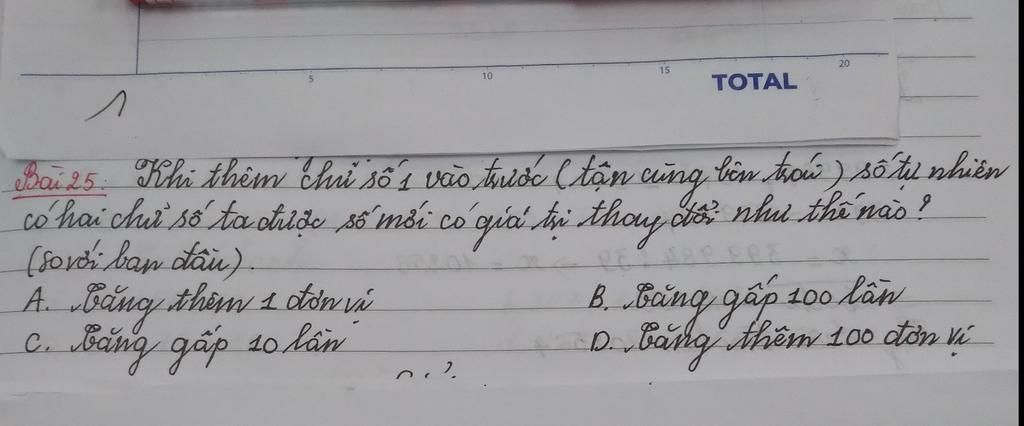 5 10 15 20
TOTAL
1
Bài 25: Khi thêm chữ số 1 vào trước (tận cùng bên trái) số tự nhiên
có hai chữ số ta được số mới có giá trị thay đổi như thế nào?
(so với ban đầu).
A. Tăng thêm 1 đơn vị B. Tăng gấp 100 lần
C. Tăng gấp 10 lần D. Tăng thêm 100 đơn vị